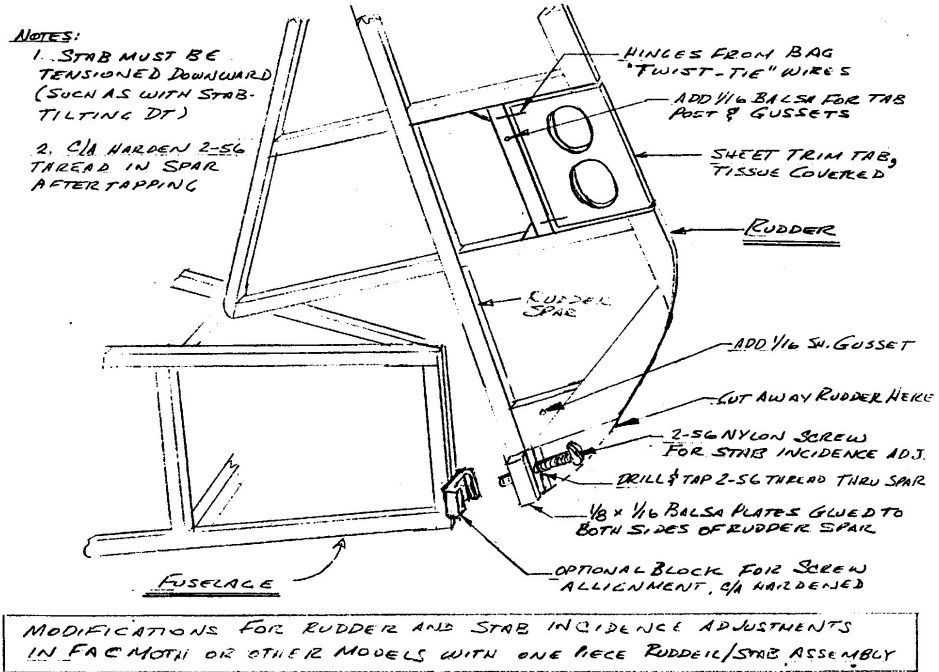 NOTES:
1. STAB MUST BE
TENSIONED DOWNWARD
(SUCH AS WITH STAB-
TILTING DT)
2. C/A HARDEN 2-56
THREAD IN SPAR
AFTER TAPPING
HINGES FROM BAG
"TWIST-TIE" WIRES
ADD 1/16 BALSA FOR TAB
POST & GUSSETS
SHEET TRIM TAB,
TISSUE COVERED
RUDDER
RUDDER
SPAR
ADD 1/16 SH. GUSSET
CUT AWAY RUDDER HERE
2-56 NYLON SCREW
FOR STAB INCIDENCE ADJ.
DRILL & TAP 2-56 THREAD THRU SPAR
1/8 x 1/16 BALSA PLATES GLUED TO
BOTH SIDES OF RUDDER SPAR
OPTIONAL BLOCK FOR SCREW
ALLIGNMENT, C/A HARDENED
FUSELAGE
MODIFICATIONS FOR RUDDER AND STAB INCIDENCE ADJUSTMENTS
IN FAC MOTH OR OTHER MODELS WITH ONE PIECE RUDDER/STAB ASSEMBLY